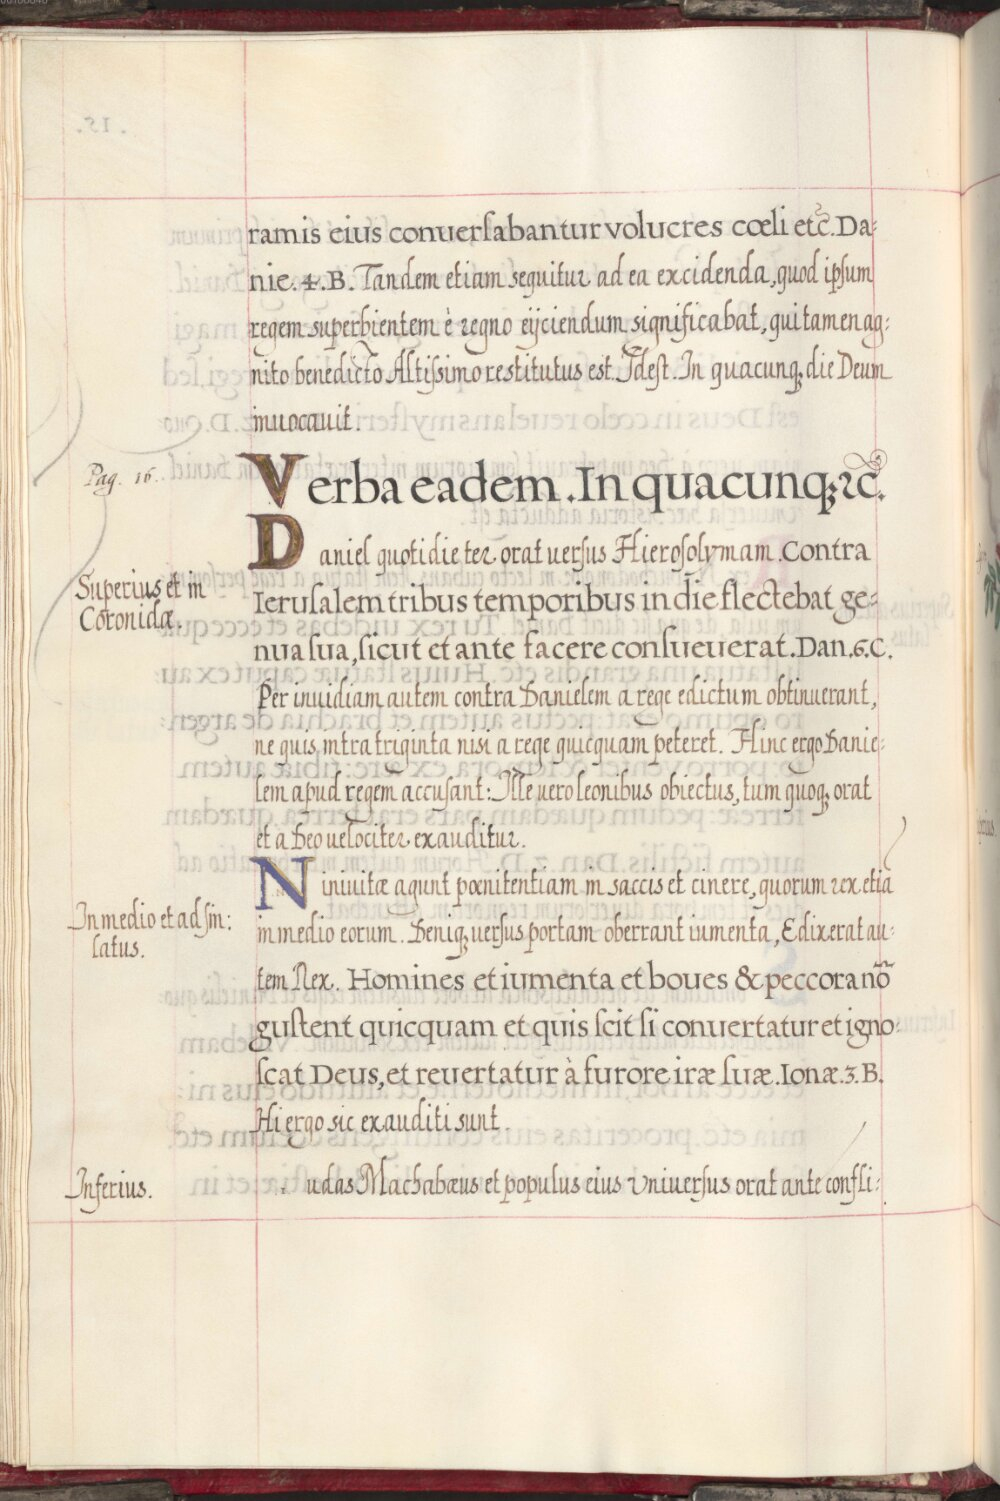 ramis eius conuersabantur volucres cœli etc̃. Da-
nie. 4. B. Tandem etiam sequitur ad ea excidenda, quod ipsum
regem superbientem è regno eÿciendum significabat, qui tamen ag-
nito benedicto Altissimo restitutus est. Idest. In quacunq; die Deum
inuocauit.
Pag. 16.
Verba eadem. In quacunq; ꝛc̃.
Superius et in
Coronidæ.
Daniel quotidie ter orat uersus Hierosolymam. Contra
Ierusalem tribus temporibus in die flectebat ge-
nua sua, sicut et ante facere consueuerat. Dan. 6. C.
Per inuidiam autem contra Danielem a rege edictum obtinuerant,
ne quis intra triginta nisi a rege quicquam peteret. Hinc ergo Danie-
lem apud regem accusant: Ille uero leonibus obiectus, tum quoq; orat
et a Deo uelociter exauditur.
In medio et ad sin:
latus.
Niniuitæ agunt pœnitentiam in saccis et cinere, quorum rex etiã
in medio eorum. Deniq; uersus portam oberrant iumenta, Edixerat au-
tem Rex. Homines et iumenta et boues & peccora nõ
gustent quicquam et quis scit si conuertatur et igno-
scat Deus, et reuertatur à furore iræ suæ. Ionæ. 3. B.
Hi ergo sic exauditi sunt.
Inferius.
udas Machabæus et populus eius Vniuersus orat ante confli-